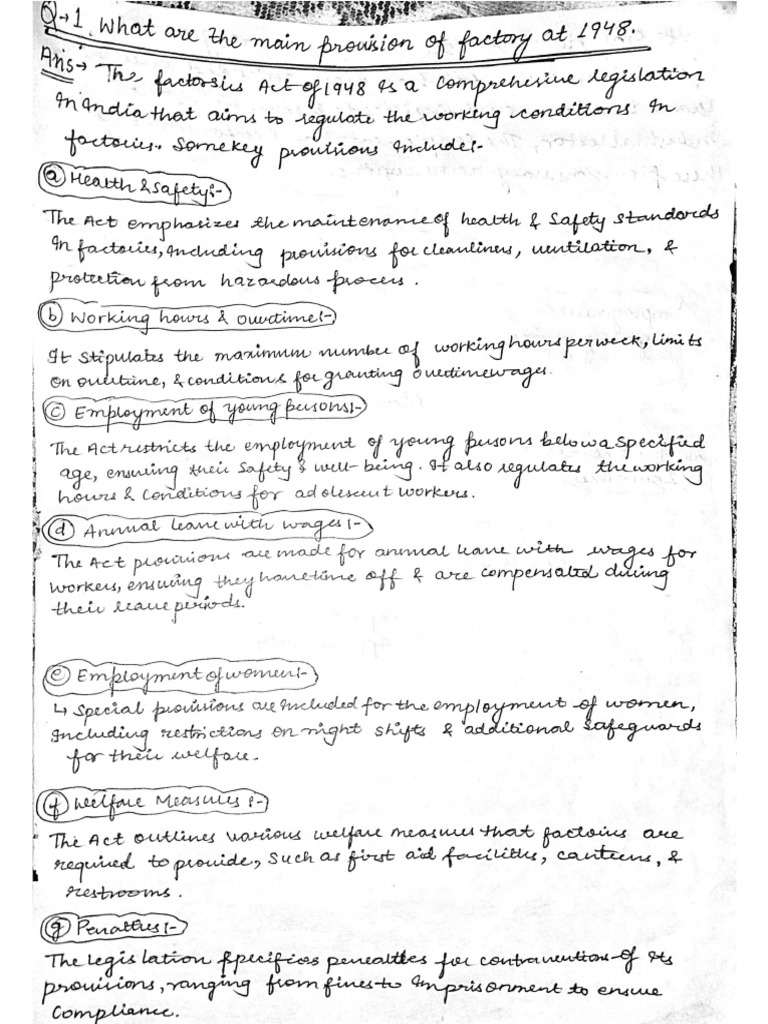 Q→1. What are the main provision of factory at 1948.
Ans→ The factorsies Act of 1948 is a comprehesive legislation
In India that aims to regulate the working conditions In
factories. Some key provisions Include:-
(a) Health & Safety:-
The Act emphasizes the maintenance of health & Safety Standards
In factories, Including provisions for cleanliness, ventilation, &
protection from hazardous process.
(b) Working hours & overtime:-
It stipulates the maximum number of working hours per week, limits
on overtime, & conditions for granting overtime wages.
(c) Employment of young persons:-
The Act restricts the employment of young persons below a specified
age, ensuring their Safety & well-being. It also regulates the working
hours & conditions for adolescent workers.
(d) Annual leave with wages:-
The Act provisions are made for annual leave with wages for
workers, ensuring they have time off & are compensated during
their leave periods.
(e) Employment of women:-
↳ Special provisions are Included for the employment of women,
Including restrictions on night shifts & additional Safeguards
for their welfare.
(f) Welfare Measures:-
The Act outlines various welfare measures that factories are
required to provide, Such as first aid facilities, canteens, &
restrooms.
(g) Penalties:-
The legislation specifies penalties for contravention of its
provisions, ranging from fines to Imprisonment to ensure
Compliance.